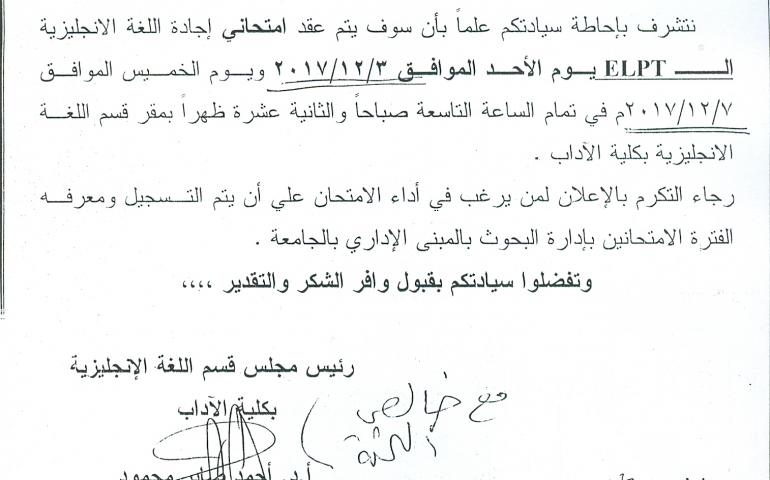 نتشرف بإحاطة سيادتكم علماً بأن سوف يتم عقد امتحاني إجادة اللغة الانجليزية
الـــــــ ELPT يــوم الأحــد الموافــق ٢٠١٧/١٢/٣ ويــوم الخمــيس الموافــق
٢٠١٧/١٢/٧م في تمام الساعة التاسعة صباحاً والثانية عشرة ظهراً بمقر قسم اللغــة
الانجليزية بكلية الآداب .
رجاء التكرم بالإعلان لمن يرغب في أداء الامتحان علي أن يتم التــسجيل ومعرفــه
الفترة الامتحانين بإدارة البحوث بالمبنى الإداري بالجامعة .
وتفضلوا سيادتكم بقبول وافر الشكر والتقدير ،،،،
رئيس مجلس قسم اللغة الإنجليزية
بكلية الآداب
مع خالص
أ.د. أحمد صابر محمود